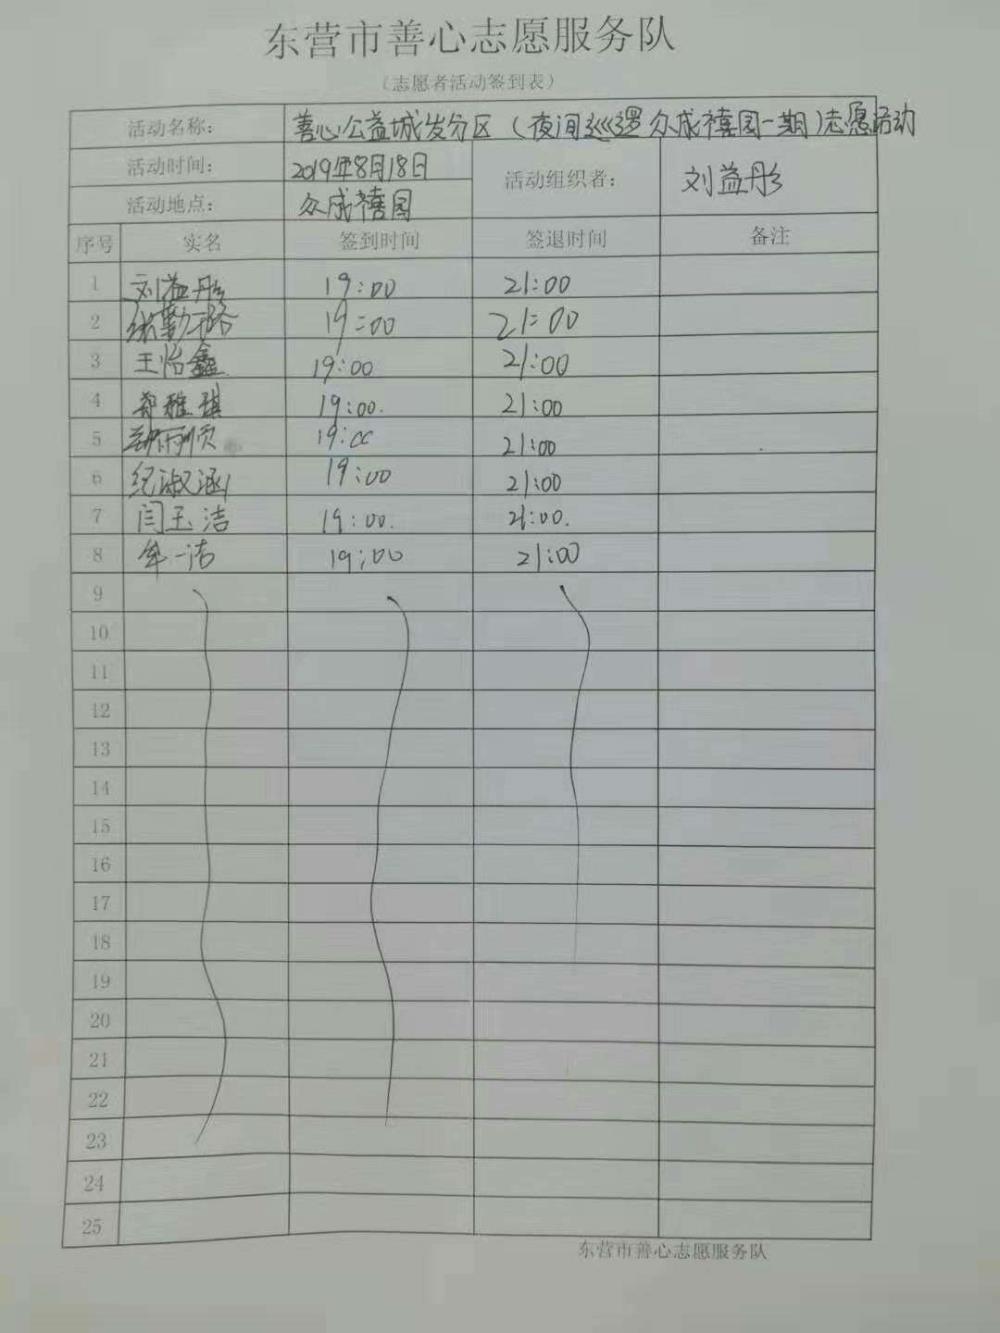 东营市善心志愿服务队
（志愿者活动签到表）
活动名称： 善心公益城发分区（夜间巡逻众成禧园一期）志愿活动
活动时间： 2019年8月18日 活动组织者： 刘益彤
活动地点： 众成禧园
序号 实名 签到时间 签退时间 备注
1 刘益彤 19:00 21:00
2 张勤 19:00 21:00
3 王怡鑫 19:00 21:00
4 雅琪 19:00. 21:00
5 19:00 21:00
6 纪淑涵 19:00 21:00
7 闫玉洁 19:00. 21:00.
8 牟一洁 19:00 21:00
9
10
11
12
13
14
15
16
17
18
19
20
21
22
23
24
25
东营市善心志愿服务队